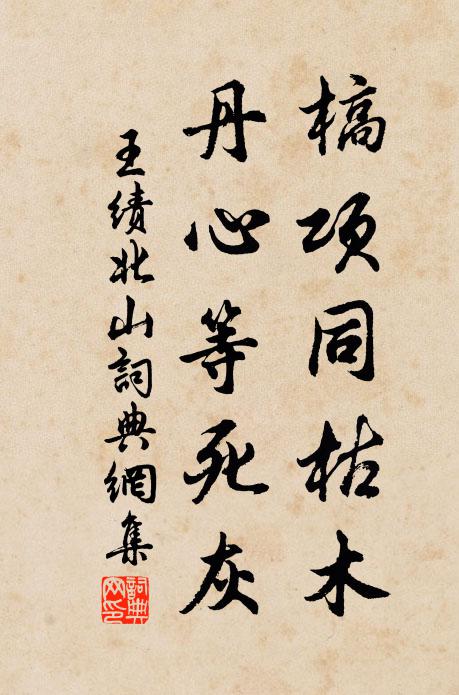 槁项同枯木
丹心等死灰
王绩北山詞典網集
詞典
网印